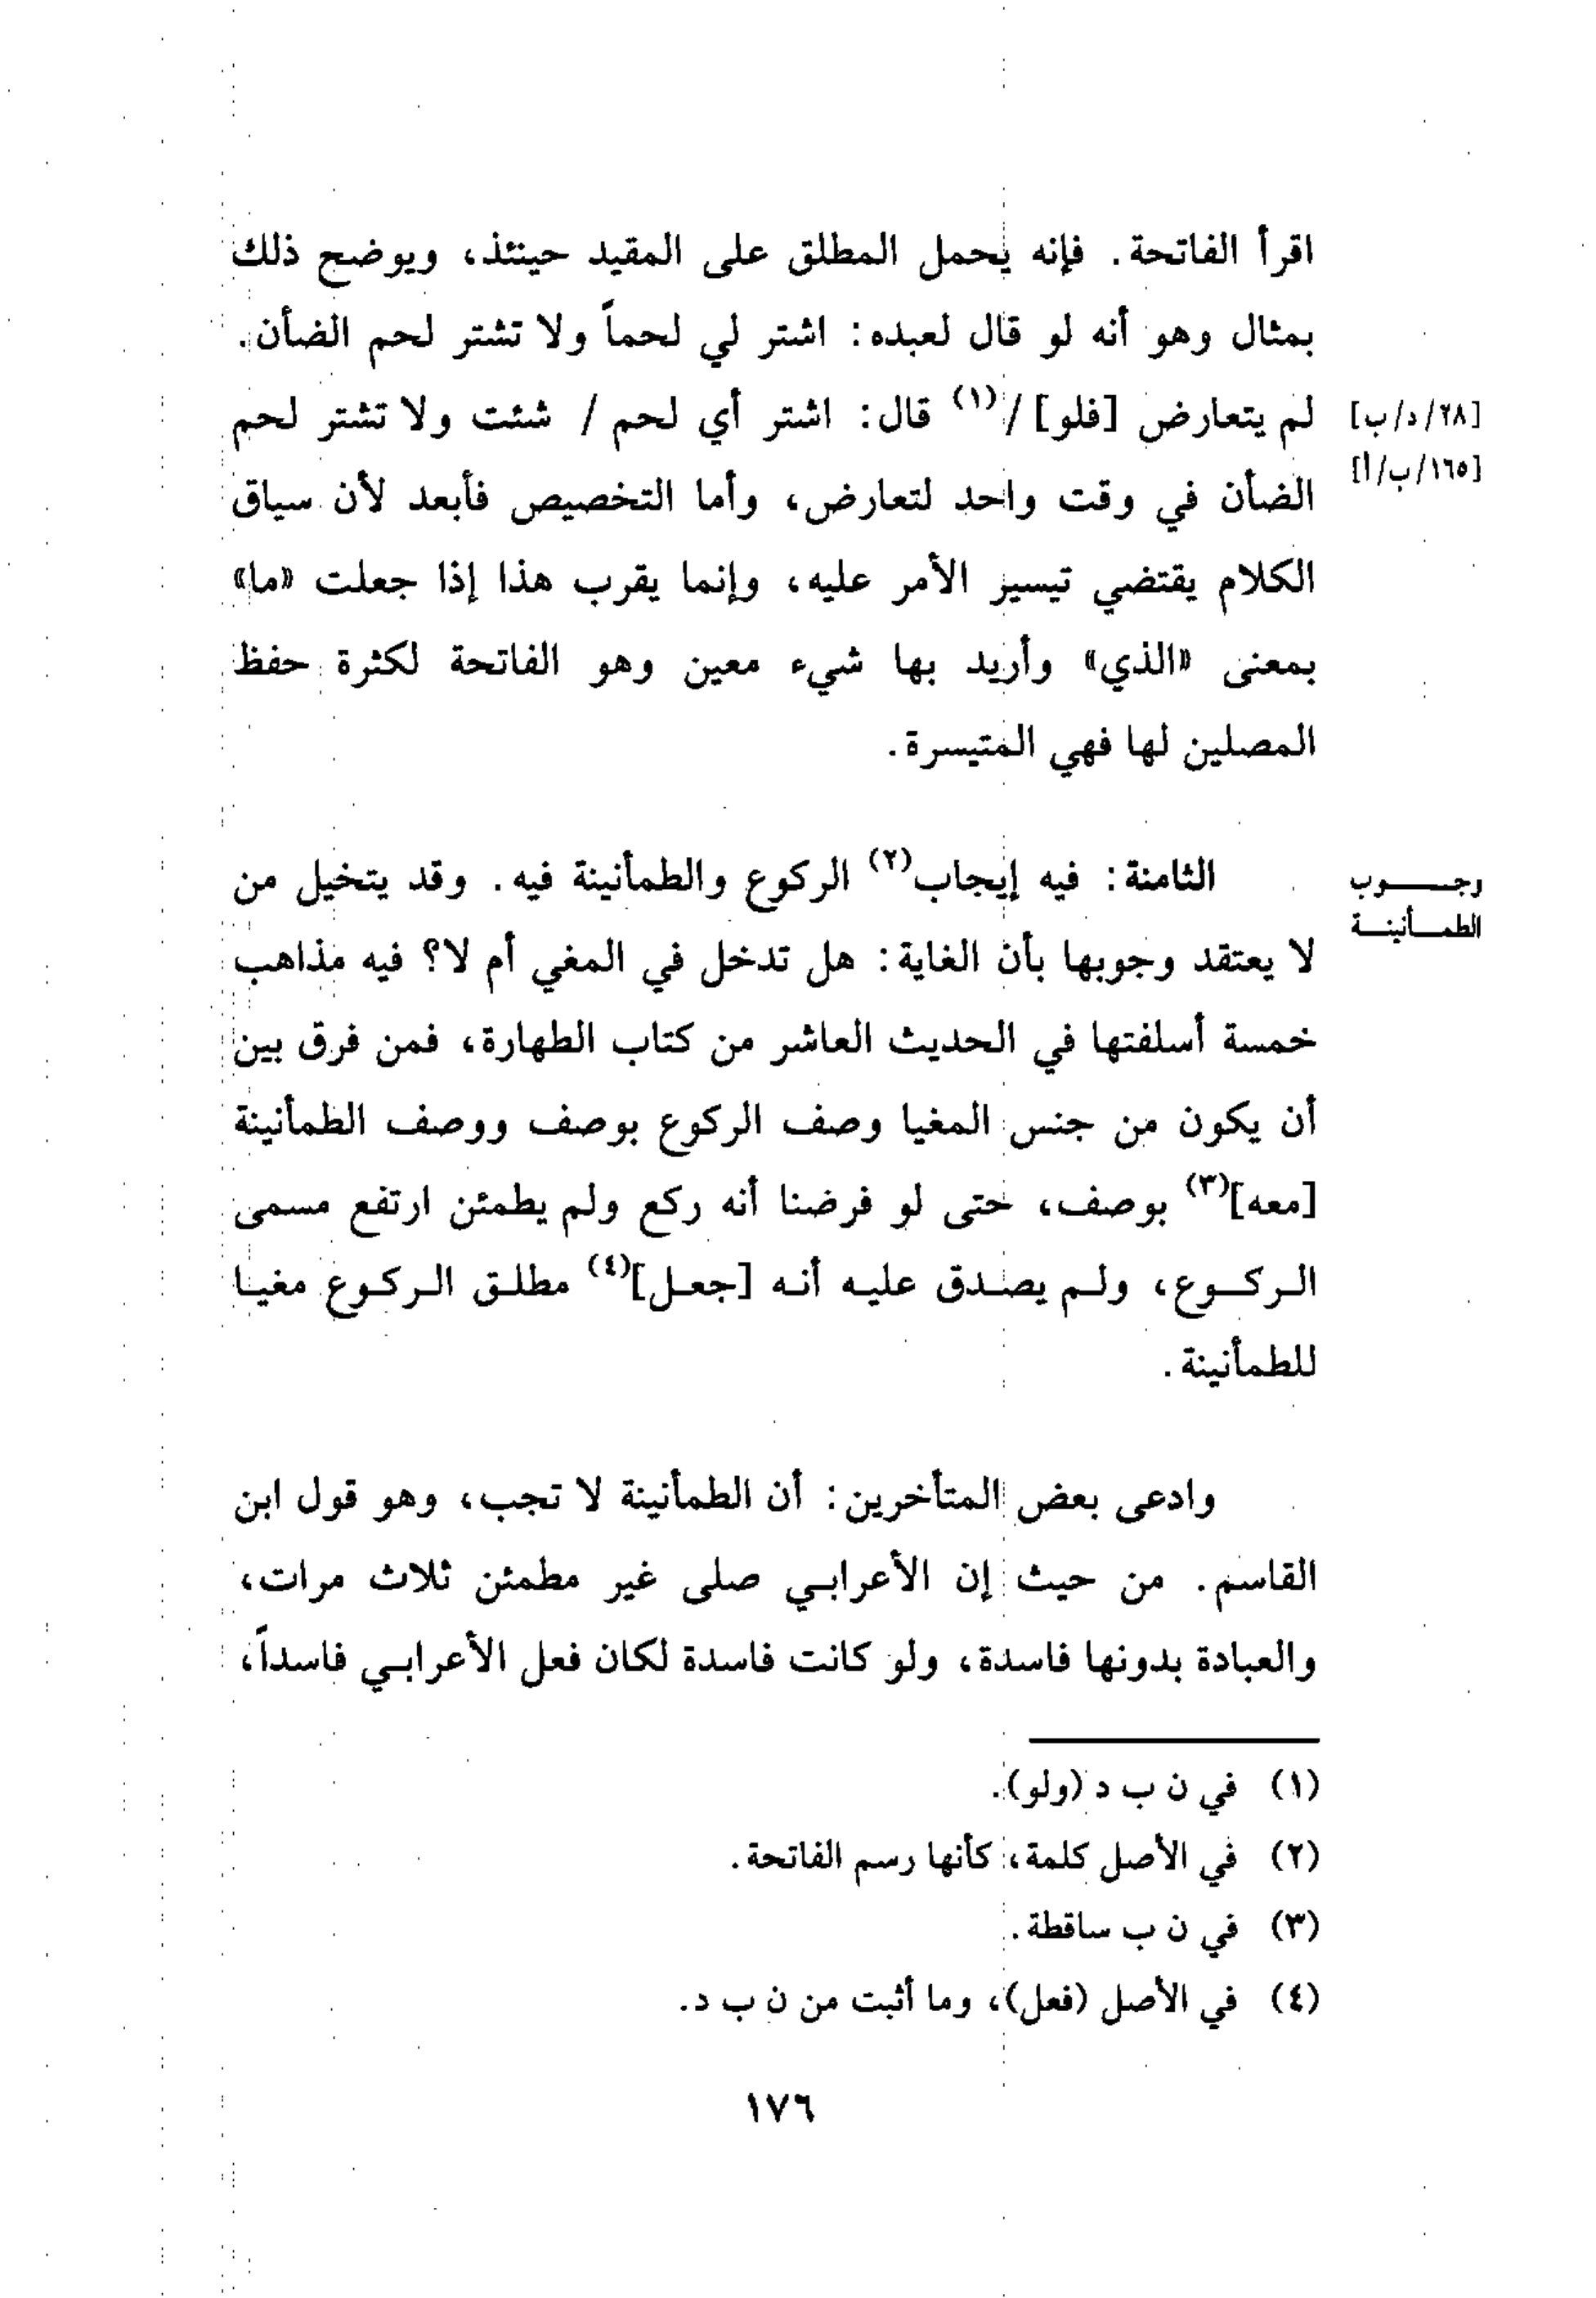 اقرأ الفاتحة. فإنه يحمل المطلق على المقيد حينئذ، ويوضح ذلك
بمثال وهو أنه لو قال لعبده: اشتر لي لحماً ولا تشتر لحم الضأن.
لم يتعارض [فلو] /(١) قال: اشتر أي لحم / شئت ولا تشتر لحم
[٢٨/د/ب]
[١٦٥/ب/أ]
الضأن في وقت واحد لتعارض، وأما التخصيص فأبعد لأن سياق
الكلام يقتضي تيسير الأمر عليه، وإنما يقرب هذا إذا جعلت «ما»
بمعنى «الذي» وأريد بها شيء معين وهو الفاتحة لكثرة حفظ
المصلين لها فهي المتيسرة.
وجوب
الطمأنينة
الثامنة: فيه إيجاب(٢) الركوع والطمأنينة فيه. وقد يتخيل من
لا يعتقد وجوبها بأن الغاية: هل تدخل في المغي أم لا؟ فيه مذاهب
خمسة أسلفتها في الحديث العاشر من كتاب الطهارة، فمن فرق بين
أن يكون من جنس المغيا وصف الركوع بوصف ووصف الطمأنينة
[معه](٣) بوصف، حتى لو فرضنا أنه ركع ولم يطمئن ارتفع مسمى
الركوع، ولم يصدق عليه أنه [جعل](٤) مطلق الركوع مغيا
للطمأنينة.
وادعى بعض المتأخرين: أن الطمأنينة لا تجب، وهو قول ابن
القاسم. من حيث إن الأعرابي صلى غير مطمئن ثلاث مرات،
والعبادة بدونها فاسدة، ولو كانت فاسدة لكان فعل الأعرابي فاسداً،
(١) في ن ب د (ولو).
(٢) في الأصل كلمة، كأنها رسم الفاتحة.
(٣) في ن ب ساقطة.
(٤) في الأصل (فعل)، وما أثبت من ن ب د.
١٧٦